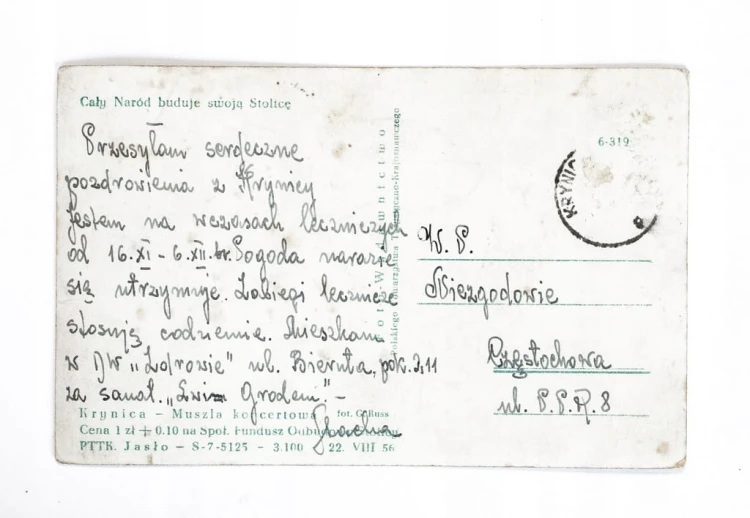 Cały Naród buduje swoją Stolicę
Przesyłam serdeczne
pozdrowienia z Krynicy
Jestem na wczasach leczniczych
od 16.XI – 6.XII. br. Pogoda narazie
się utrzymuje. Zabiegi lecznicze
stosują codziennie. Mieszkam
w DW „Zdrowie" ul. Bieruta, pok. 2,11
za sanat. „Lwim Grodem". –
Krynica – Muszla koncertowa fot. G. Russ
Cena 1 zł + 0.10 na Społ. Fundusz
PTTK. Jasło – S-7-5125 – 3.100 22. VIII 56
Foto-Wydawnictwo
Polskiego Towarzystwa Turystyczno-Krajoznawczego
6-319
KRYNIC
W. P.
Niezgodowie
Częstochowa
ul. P.P.R. 8